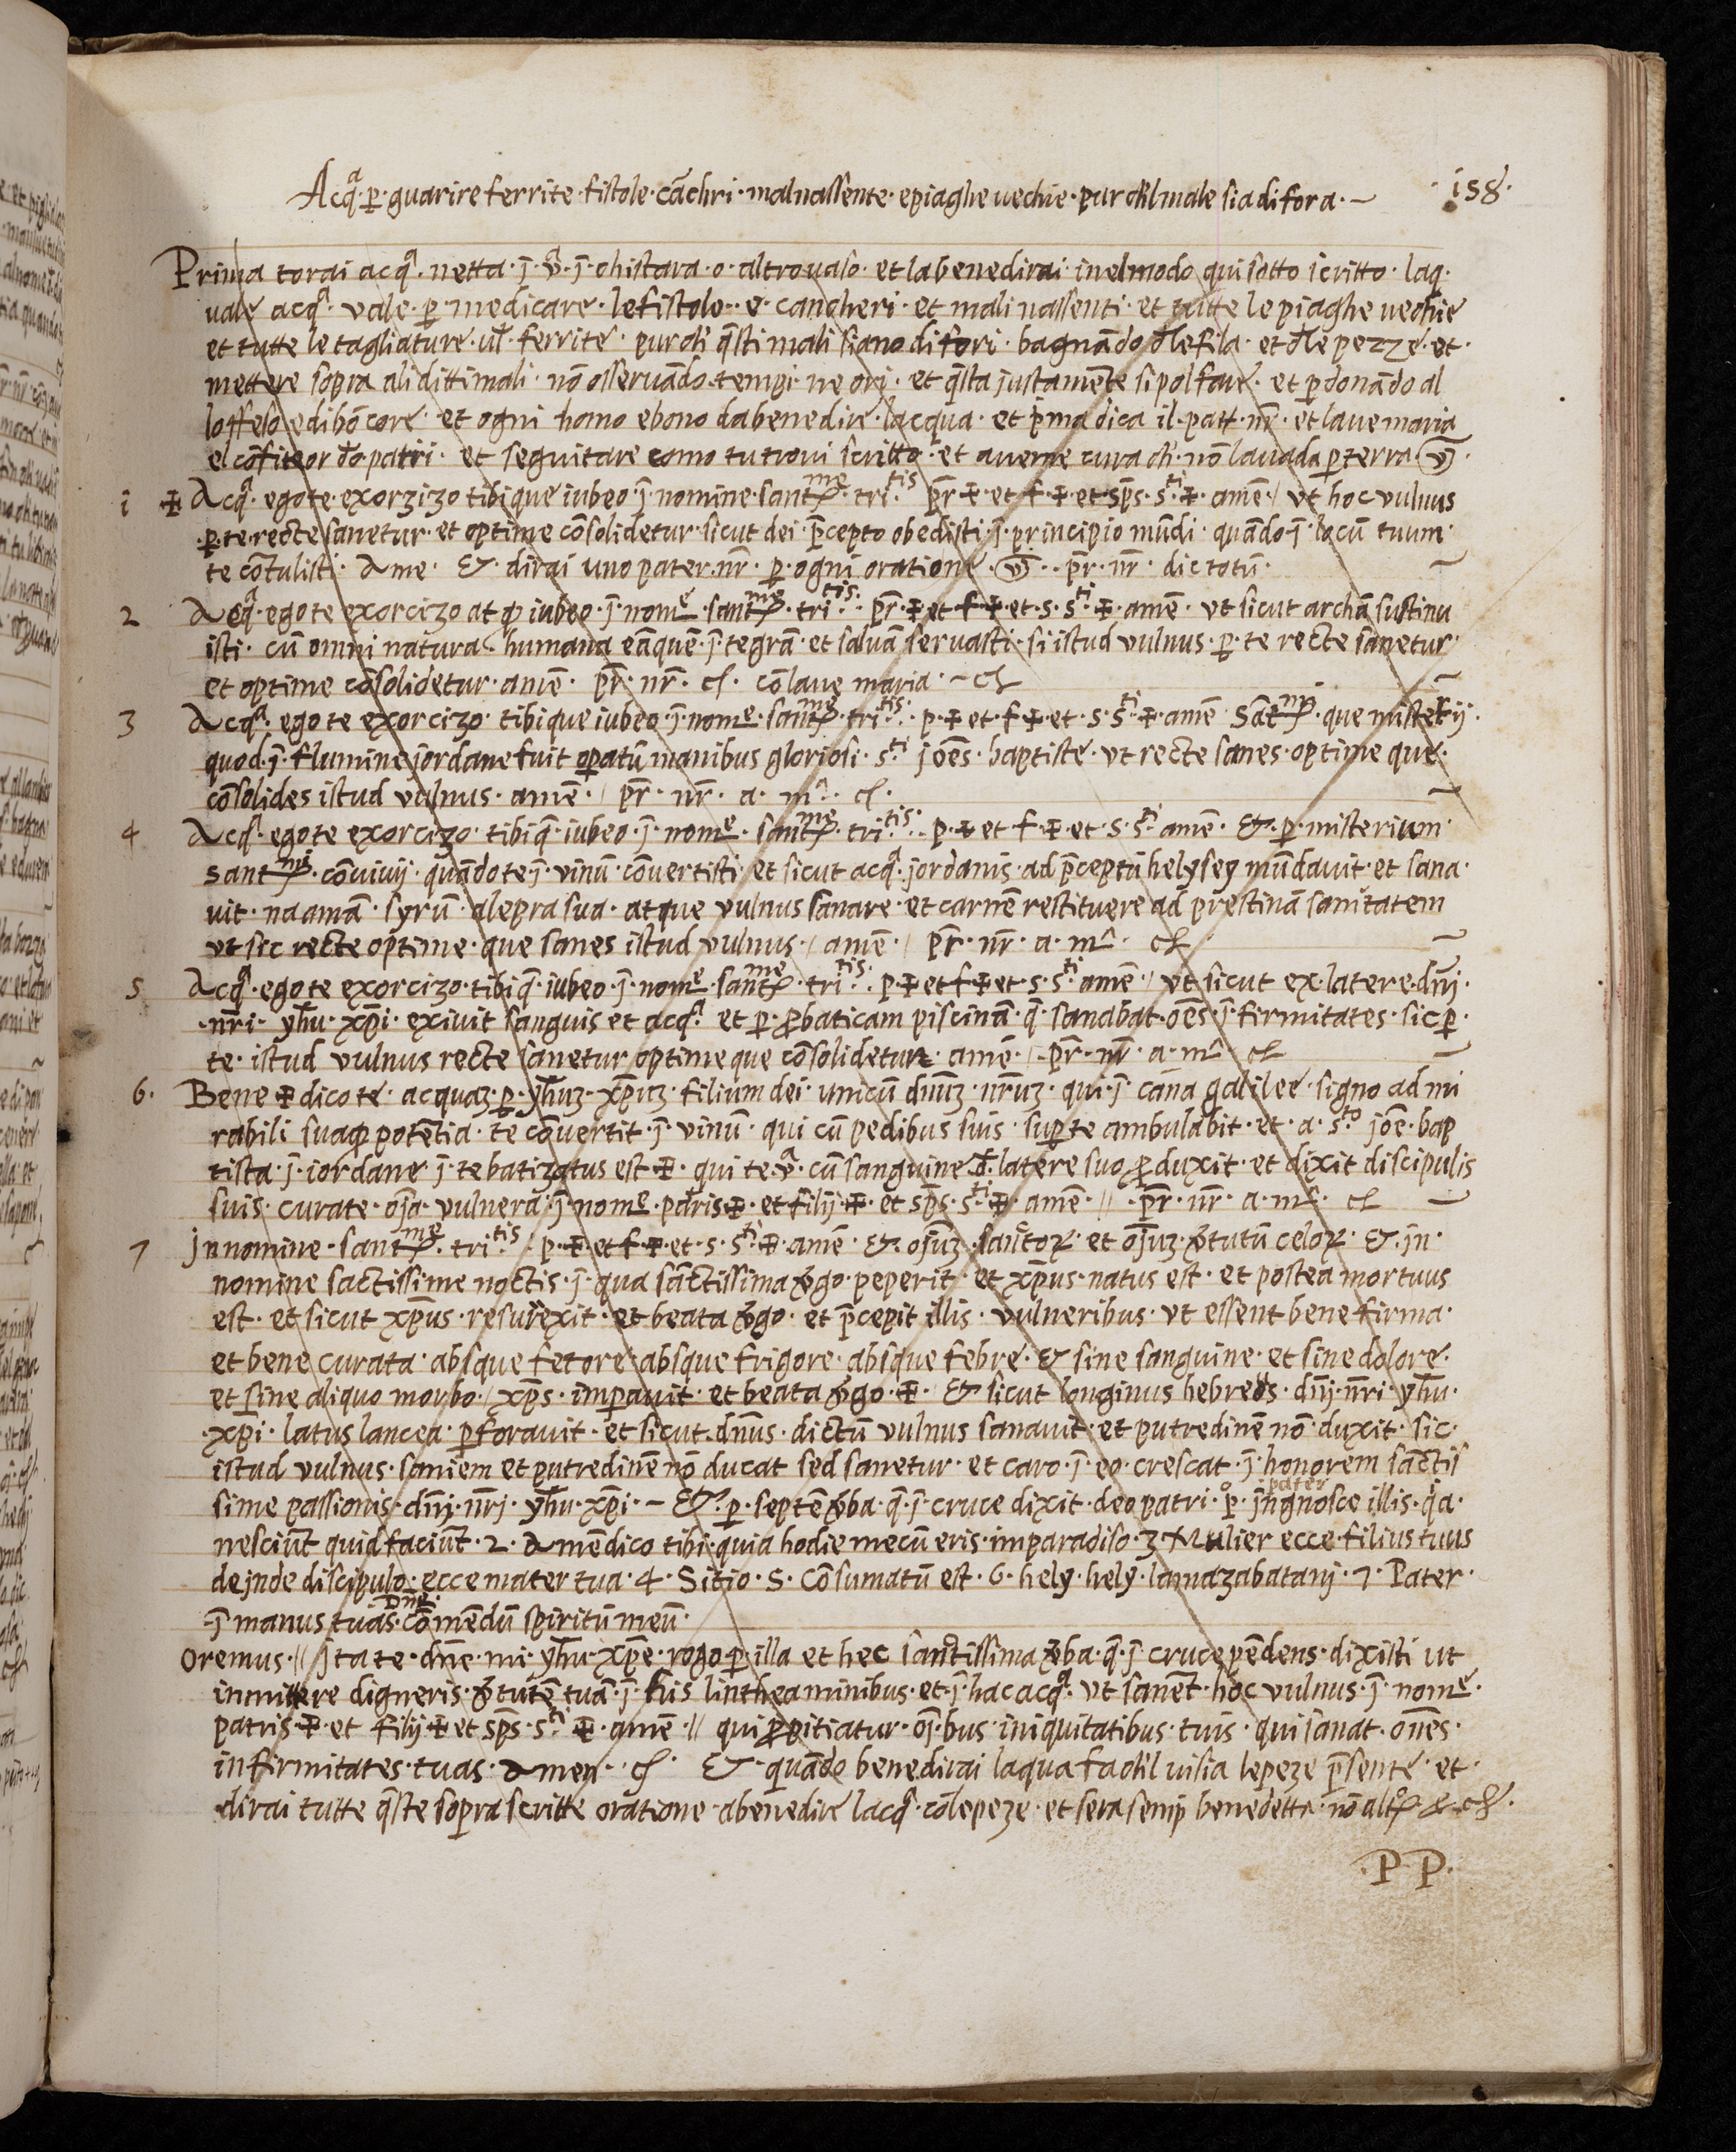 Acq̃ᵃ · ꝑ · guarire ferrite · fistole · cãchri · malnassente · e piaghe uechie · pur chl male sia di fora · ~
· i58 ·
Prima torai acqᵃ · netta · j̃ · ṽ · j̃ · chistara · o · altro uaso · et la benedirai · inel modo qui sotto scritto · laq ·
uale acqᵃ · vale · ꝑ · medicare · le fistole · e · cancheri · et mali nassenti · et tutte le piaghe uechie
et tutte le tagliature · uł · ferrite · pur ch̃ q̃sti mali siano di fori · bagnãdo đle fila · et đle pezze · et ·
mettere sopra ali ditti mali · nõ osseruãdo tempi · ne ori · et q̃sta justamẽte si pol fare · et ꝑdonãdo al
loffeso e di bõ core · et ogni homo e bono da benedire · lacqua · et p̃ma dica il · patt · nr̃ · et laue maria
el cõfiteor đo patri · et seguitare como tu troui scritto · et auerne cura ch̃ · nõ la uada ꝑ terra · ṽ ·
i ✠ Acqᵃ · ego te · exorzizo tibi que iubeo · j̃ · nomine · santᵐᵉ · triᵗⁱˢ · pr̃ ✠ · et · f · ✠ · et · sp̃s · sᵗⁱ · ✠ · amẽ · / vt hoc vulnus
· ꝑ · te · recte sanetur · et optime cõsolidetur · sicut dei · p̃cepto obedisti · j̃ · principio mũdi · quãdo j̃ · locũ tuum ·
te cõtulisti · Ame · & · dirai uno pater · nr̃ · ꝑ · ogni oratione · ṽ · · pr̃ · nr̃ · dic totũ · ~
2 Acqᵃ · ego te exorcizo atqꝫ iubeo · j̃ · nomᵉ · santᵐᵉ · triᵗⁱˢ · pr̃ · ✠ et · f · ✠ · et · s · sᵗⁱ · ✠ · amẽ · vt sicut archã sustinu
isti · cũ omni natura · humana eãquẽ · j̃ · tegrã · et saluã seruasti · si istud vulnus · ꝑ · te recte sanetur ·
et optime cõsolidetur · amẽ · pr̃ · nr̃ · cħ · cõ laue maria · ~ cħ ~
3 Acqᵃ · ego te exorcizo · tibi que iubeo · j̃ · nomᵉ · santᵐᵉ · triᵗⁱˢ · p · ✠ et · f ✠ · et · s · sᵗⁱ · ✠ · amẽ Sãtⁿⁱ · que misterij ·
quod · j̃ · flumine jordane fuit oꝑatũ manibus gloriosi · sᵗⁱ jõẽs · baptiste · vt recte sanes · optime que ·
cõsolides istud vulnus · amẽ · / pr̃ · nr̃ · a · mᵃ · cħ · ~
4 Acqᵃ · ego te exorcizo · tibi q̃ · iubeo · j̃ · nomᵉ · santᵐᵉ · triᵗⁱˢ · p · ✠ et · f · ✠ · et · s · sᵗⁱ · amẽ · & · ꝑ · misterium ·
santⁿⁱ · cõuiuij · quãdo te j̃ · vinũ · cõuertisti · et sicut acqᵃ · jordanis · ad p̃ceptũ helysey mũdauit · et sana ·
uit · naamã · syrũ · a lepra sua · atque vulnus sanare · et carnẽ restituere ad prestinã sanitatem
vt sic recte optime · que sanes istud vulnus · / amẽ · / pr̃ · nr̃ · a · mᵃ · cħ · ~
5 Acqᵃ · ego te exorcizo · tibi q̃ · iubeo · j̃ · nomᵉ · santᵐᵉ · triᵗⁱˢ · p · ✠ · et f ✠ et · s · sᵗⁱ · amẽ · / vt sicut ex latere · dñj ·
· nr̃i · yħu · xp̃i · exiuit sanguis et acqᵃ · et · ꝑ · ꝓbaticam piscinã · q̃ · sanabat · oẽs · j̃ · firmitates · sic ꝑ ·
te · istud vulnus recte sanetur optime que cõsolidetur · amẽ · / · pr̃ · nr̃ · a · mᵃ · cħ ~
6 · Bene ✠ dico te · acquaꝫ · ꝑ · yħuꝫ · xp̃uꝫ · filium dei · unicũ dñuꝫ · nr̃uꝫ · qui · j̃ · cana galilee · signo ad mi
rabili suaqꝫ potẽtia · te cõuertit · j̃ · vinũ · qui cũ pedibus suis · suꝑ te ambulabit · et · a · sᵗᵒ jõe · bap
tista · j̃ · iordane · j̃ · te batizatus est ✠ · qui te · vᵃ · cũ sanguine · đ · latere suo ꝓduxit · et dixit discipulis
suis · curate · oj̃a · vulnera · j̃ · nomᵉ · patris ✠ · et filij · ✠ · et sp̃s · sᵗⁱ ✠ · amẽ · // · pr̃ · nr̃ · a · mᵃ · cħ ~
7 Jn nomine · santᵐᵉ · triᵗⁱˢ / p · ✠ · et f · ✠ · et · s · sᵗⁱ · ✠ · amẽ · & · oj̃uꝫ · sanctoꝝ · et oj̃uꝫ · v̉tutũ celoꝝ · & · jn ·
nomine sactissime noctis · j̃ · qua sãctissima v̉go · peperit · et xp̃us · natus est · et postea mortuus
est · et sicut xp̃us · resurexit · et beata v̉go · et p̃cepit illis · vulneribus · vt essent bene firma ·
et bene curata · absque fetore · absque frigore · absque febre · & sine sanguine · et sine dolore ·
et sine aliquo morbo · / xp̃s · imꝑauit · et beata v̉go · ✠ · / & sicut longinus hebreus · dñj · nr̃i · yħu ·
· xp̃i · latus lancea · ꝑforauit · et sicut · dñus · dictũ vulnus sanauit · et putredinẽ nõ duxit · sic ·
istud vulnus · saniem et putredinẽ nõ ducat sed sanetur · et caro · j̃ · eo · crescat · j̃ · honorem sãctis
sime passionis · dñj · nr̃j · yħu · xp̃i · ~ & · ꝑ · septẽ v̉ba · q̃ · j̃ · cruce dixit · deo patri · pº · pater jngnosce illis · q̃a ·
nesciũt quid faciũt · 2 · Amẽ dico tibi · quia hodie mecũ eris · im paradiso · 3 · Mulier ecce · filius tuus
dejnde discipulo · ecce mater tua · 4 · Sitio · 5 · Cõsumatũ est · 6 · hely · hely · lamazabatanj · 7 · Pater ·
j̃ manus tuas · Dñe · cõmẽdũ spiritũ meũ ·
Oremus · // Jta te · dñe · mi · yħu · xp̃e · rogo ꝑ · illa et hec santissima v̉ba · q̃ · j̃ cruce pẽdens · dixisti ut
inmittere digneris · v̉tutẽ tuã · j̃ · his lintheaminibus · et · j̃ · hac acqᵃ · vt sanẽt · hoc vulnus · j̃ · nomᵉ ·
patris · ✠ · et filij ✠ et sp̃s · sᵗⁱ ✠ · amẽ · // qui ꝓpitiatur · oj̃ · bus · iniquitatibus · tuis · qui sanat · oñes ·
infirmitates · tuas · Amen · cħ · & · quãdo benedirai laqua fa chl ui sia le peze p̃sente · et ·
dirai tutte q̃ste sopra scritte oratione · a benedire lacqᵃ · cõ le peze · et sera semp̃ benedetta · nõ alt
· P P ·